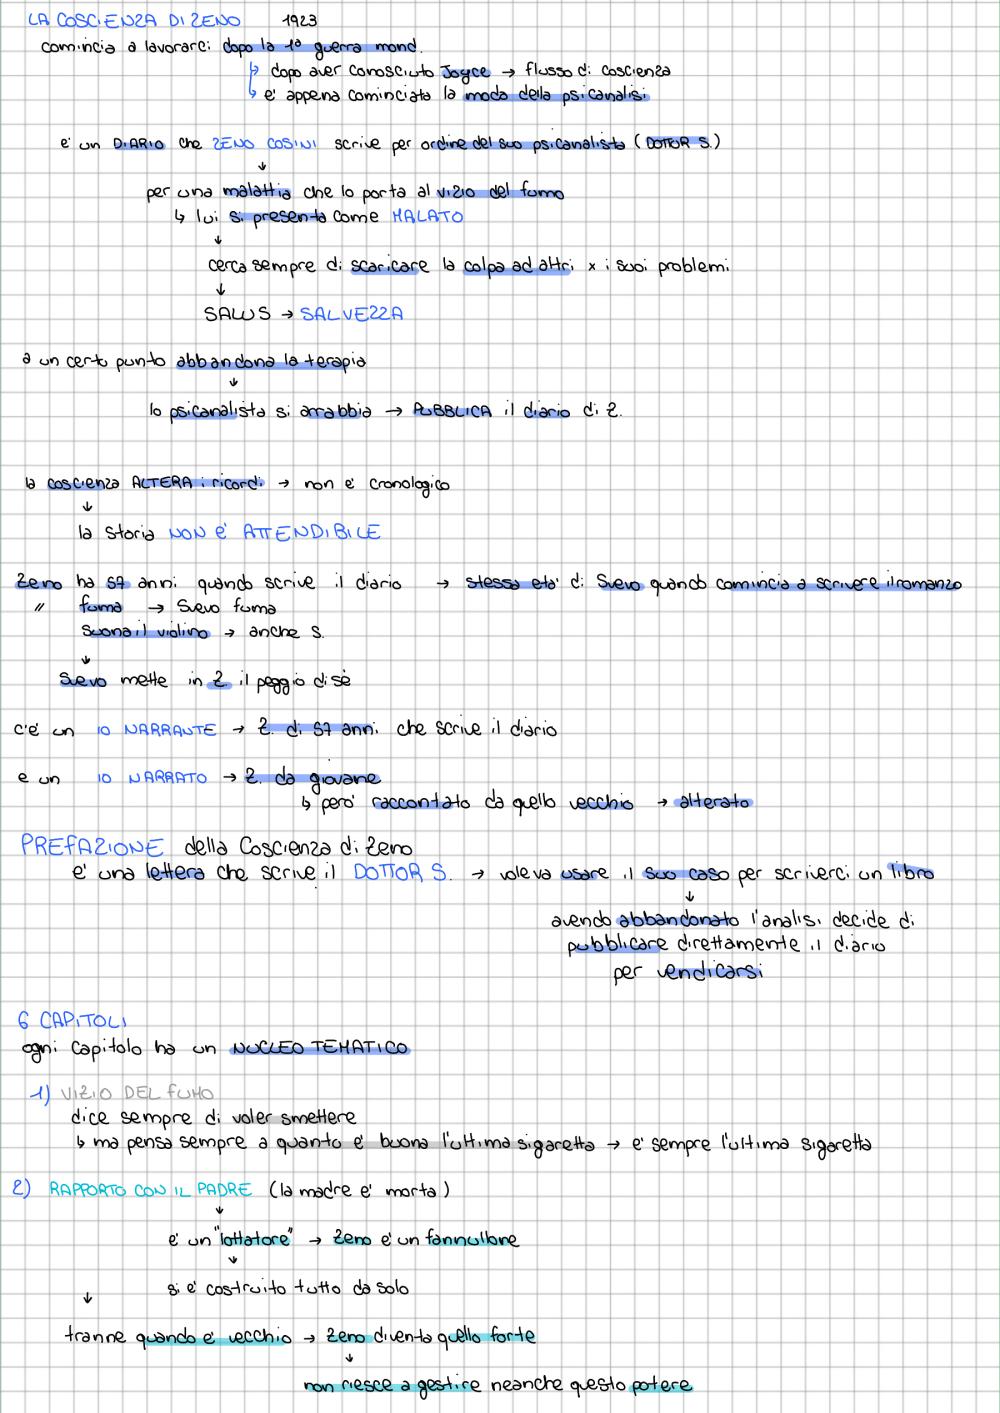 LA COSCIENZA DI ZENO 1923
comincia a lavorarci dopo la 1ª guerra mond.
↳ dopo aver conosciuto Joyce → flusso di coscienza
↳ e' appena cominciata la moda della psicanalisi
e' un DIARIO che ZENO COSINI scrive per ordine del suo psicanalista (DOTTOR S.)
↓
per una malattia che lo porta al vizio del fumo
↳ lui si presenta come MALATO
↓
cerca sempre di scaricare la colpa ad altri x i suoi problemi
↓
SALUS → SALVEZZA
a un certo punto abbandona la terapia
↓
lo psicanalista si arrabbia → PUBBLICA il diario di Z.
la coscienza ALTERA i ricordi → non e' cronologico
↓
la storia NON e' ATTENDIBILE
Zeno ha 57 anni quando scrive il diario → stessa eta' di Svevo quando comincia a scrivere il romanzo
" fuma → Svevo fuma
suona il violino → anche S.
↓
Svevo mette in Z. il peggio di sè
c'e' un IO NARRANTE → Z. di 57 anni che scrive il diario
e un IO NARRATO → Z. da giovane
↳ pero' raccontato da quello vecchio → alterato
PREFAZIONE della Coscienza di Zeno
e' una lettera che scrive il DOTTOR S. → voleva usare il suo caso per scriverci un libro
↓
avendo abbandonato l'analisi decide di
pubblicare direttamente il diario
per vendicarsi
6 CAPITOLI
ogni capitolo ha un NUCLEO TEMATICO
1) VIZIO DEL FUMO
dice sempre di voler smettere
↳ ma pensa sempre a quanto e' buona l'ultima sigaretta → e' sempre l'ultima sigaretta
2) RAPPORTO CON IL PADRE (la madre e' morta)
↓
e' un "lottatore" → Zeno e' un fannullone
↓
si e' costruito tutto da solo
↓
tranne quando e' vecchio → Zeno diventa quello forte
↓
non riesce a gestire neanche questo potere